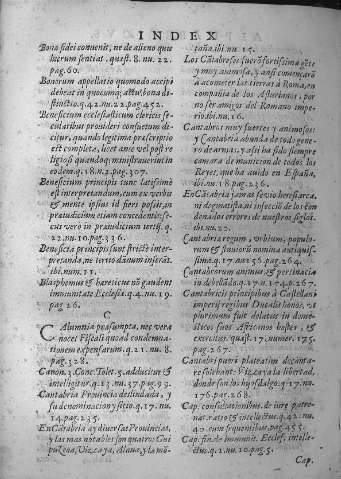 INDEX
Bona fidei convenit, ne de alieno quis
lucrum sentiat, quæst. 8. nu. 22.
pag. 60.
Bonorum appellatio quomodo accipi
debeat in quocumq; actu bona di-
stinctio. q. 42. nu. 22. pag. 452.
Beneficium ecclesiasticum clericis sæ-
cularibus provideri consuetum di-
citur, quando legitima præscriptio
est completa, licet ante vel post re-
ligiosi quandoq; ministraverint in
eodem. q. 18. n. 2. pag. 307.
Beneficium principis sunt latissime
est interpretandum, cum ex verbis
& mente ipsius id fieri possit, in
præiudicium etiam concedentis se-
cus vero in præiudicium tertij. q.
22. nu. 10. pag. 336.
Beneficia principis sunt stricte inter-
pretanda, ne tertio damnum inferāt.
ibi. num. 11.
Blasphemus & hæreticus nō gaudent
immunitate Ecclesiæ. q. 4. nu. 19.
pag. 26.
C
Calumnia præsumpta, nec vera
nocet Fiscali quoad condemna-
tionem expensarum. q. 21. nu. 8.
pag. 328.
Canon. 3. Conc. Tolet. 3. adducitur &
intelligitur. q. 13. nu. 37. pag. 93.
Cantabria Provincia deslindada, y
su denominacion y sitio. q. 17. nu.
14. pag. 235.
En Cātabria ay diversas Provincias,
y las mas notables son quatro: Gui
puzcoa, Vizcaya, Alava, y la mō-
taña. ibi. nu. 15.
Los Cātabres fuerō fortissima gēte
y muy animosa, y ansi començarō
à acometer las tierras à Roma, en
compañia de los Asturianos, por
no ser amigos del Romano impe-
rio. ibi. nu. 16.
Cantabros muy fuertes y animosos:
y Cantabria abunda de todo gene-
ro de armas, y assi ha sido siempre
camara de municion de todos los
Reyes, que ha auido en España,
ibi. nu. 18 pag. 236.
En Cātabria jamas se vio heresiarca,
ni dogmatista, ni infecciō de los cō-
denados errores de nuestros siglos.
ibi. nu. 20.
Cantabria regum, urbium, populo-
rum & fluviorū nomina antiquis-
sima. q. 17. nu. 156. pag. 264.
Cantabrorum animus, & pertinacia
in debellādo. q. 17. n. 174. p. 267.
Cantabricis principibus à Castellani
imperij regibus Ducalis honos, ut
plurimum fuit delatus in dome-
sticos suos Astricomos hostes, &
exercitus. quæst. 17. numer. 175.
pag. 267.
Cantabri pueri plateatim decanta-
re solebant: Vizcaya la libertad,
donde son los hijosdalgo. q. 17. nu.
176. pag. 268.
Cap. consultationibus. de iure patro-
nat. ratio & intellectus. q. 42. nu.
40. cum sequentibus. pag. 455.
Cap. fin. de immunit. Eccles. intelle-
ctus. q. 1. nu. 10. pag. 5.
Cap.